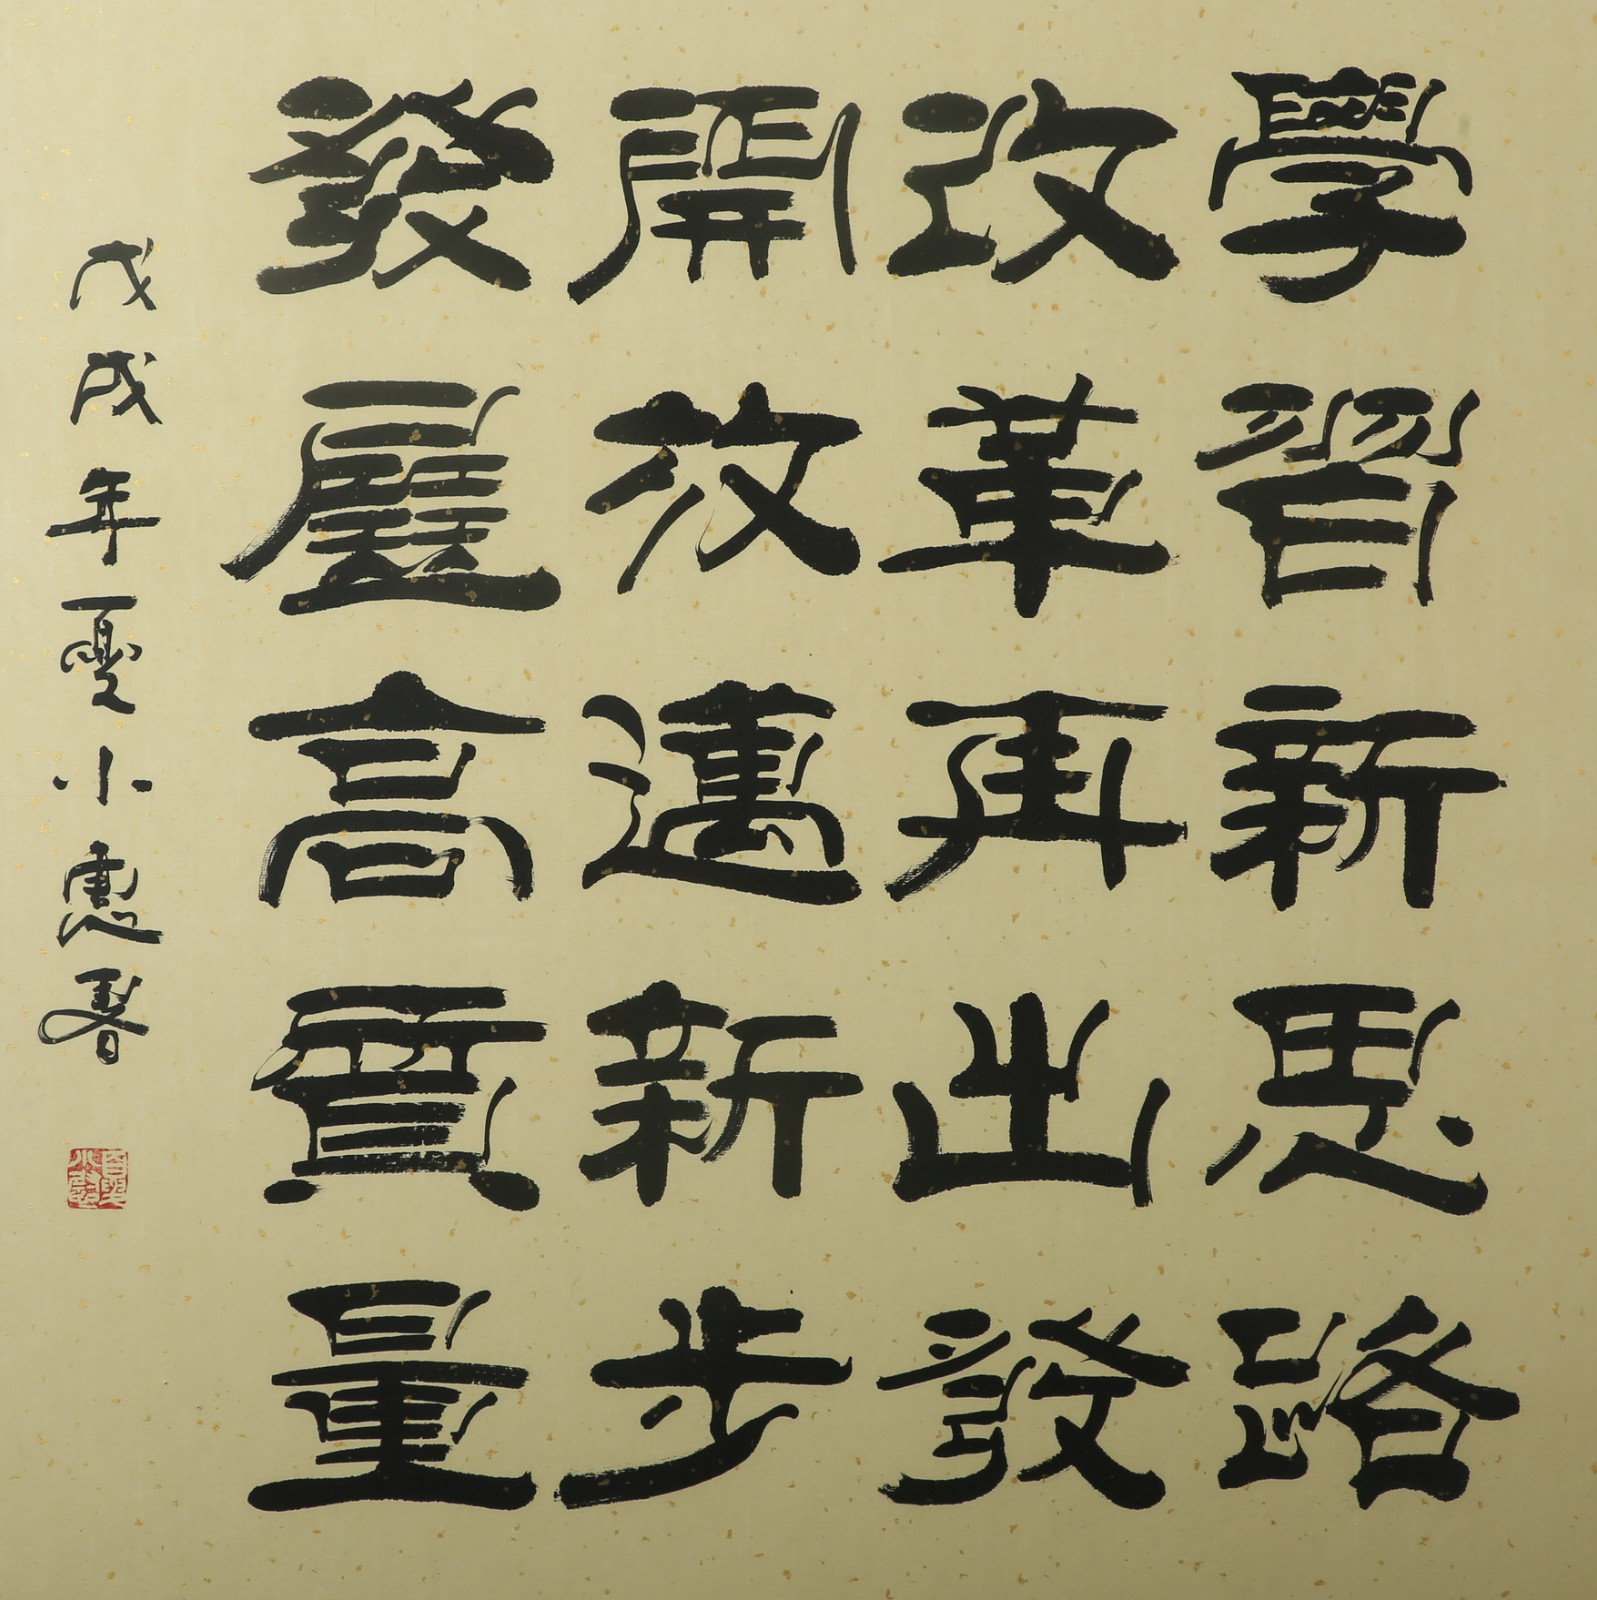 學習新思路
改革再出發
開放邁新步
發展高質量
戊戌年夏小惠書